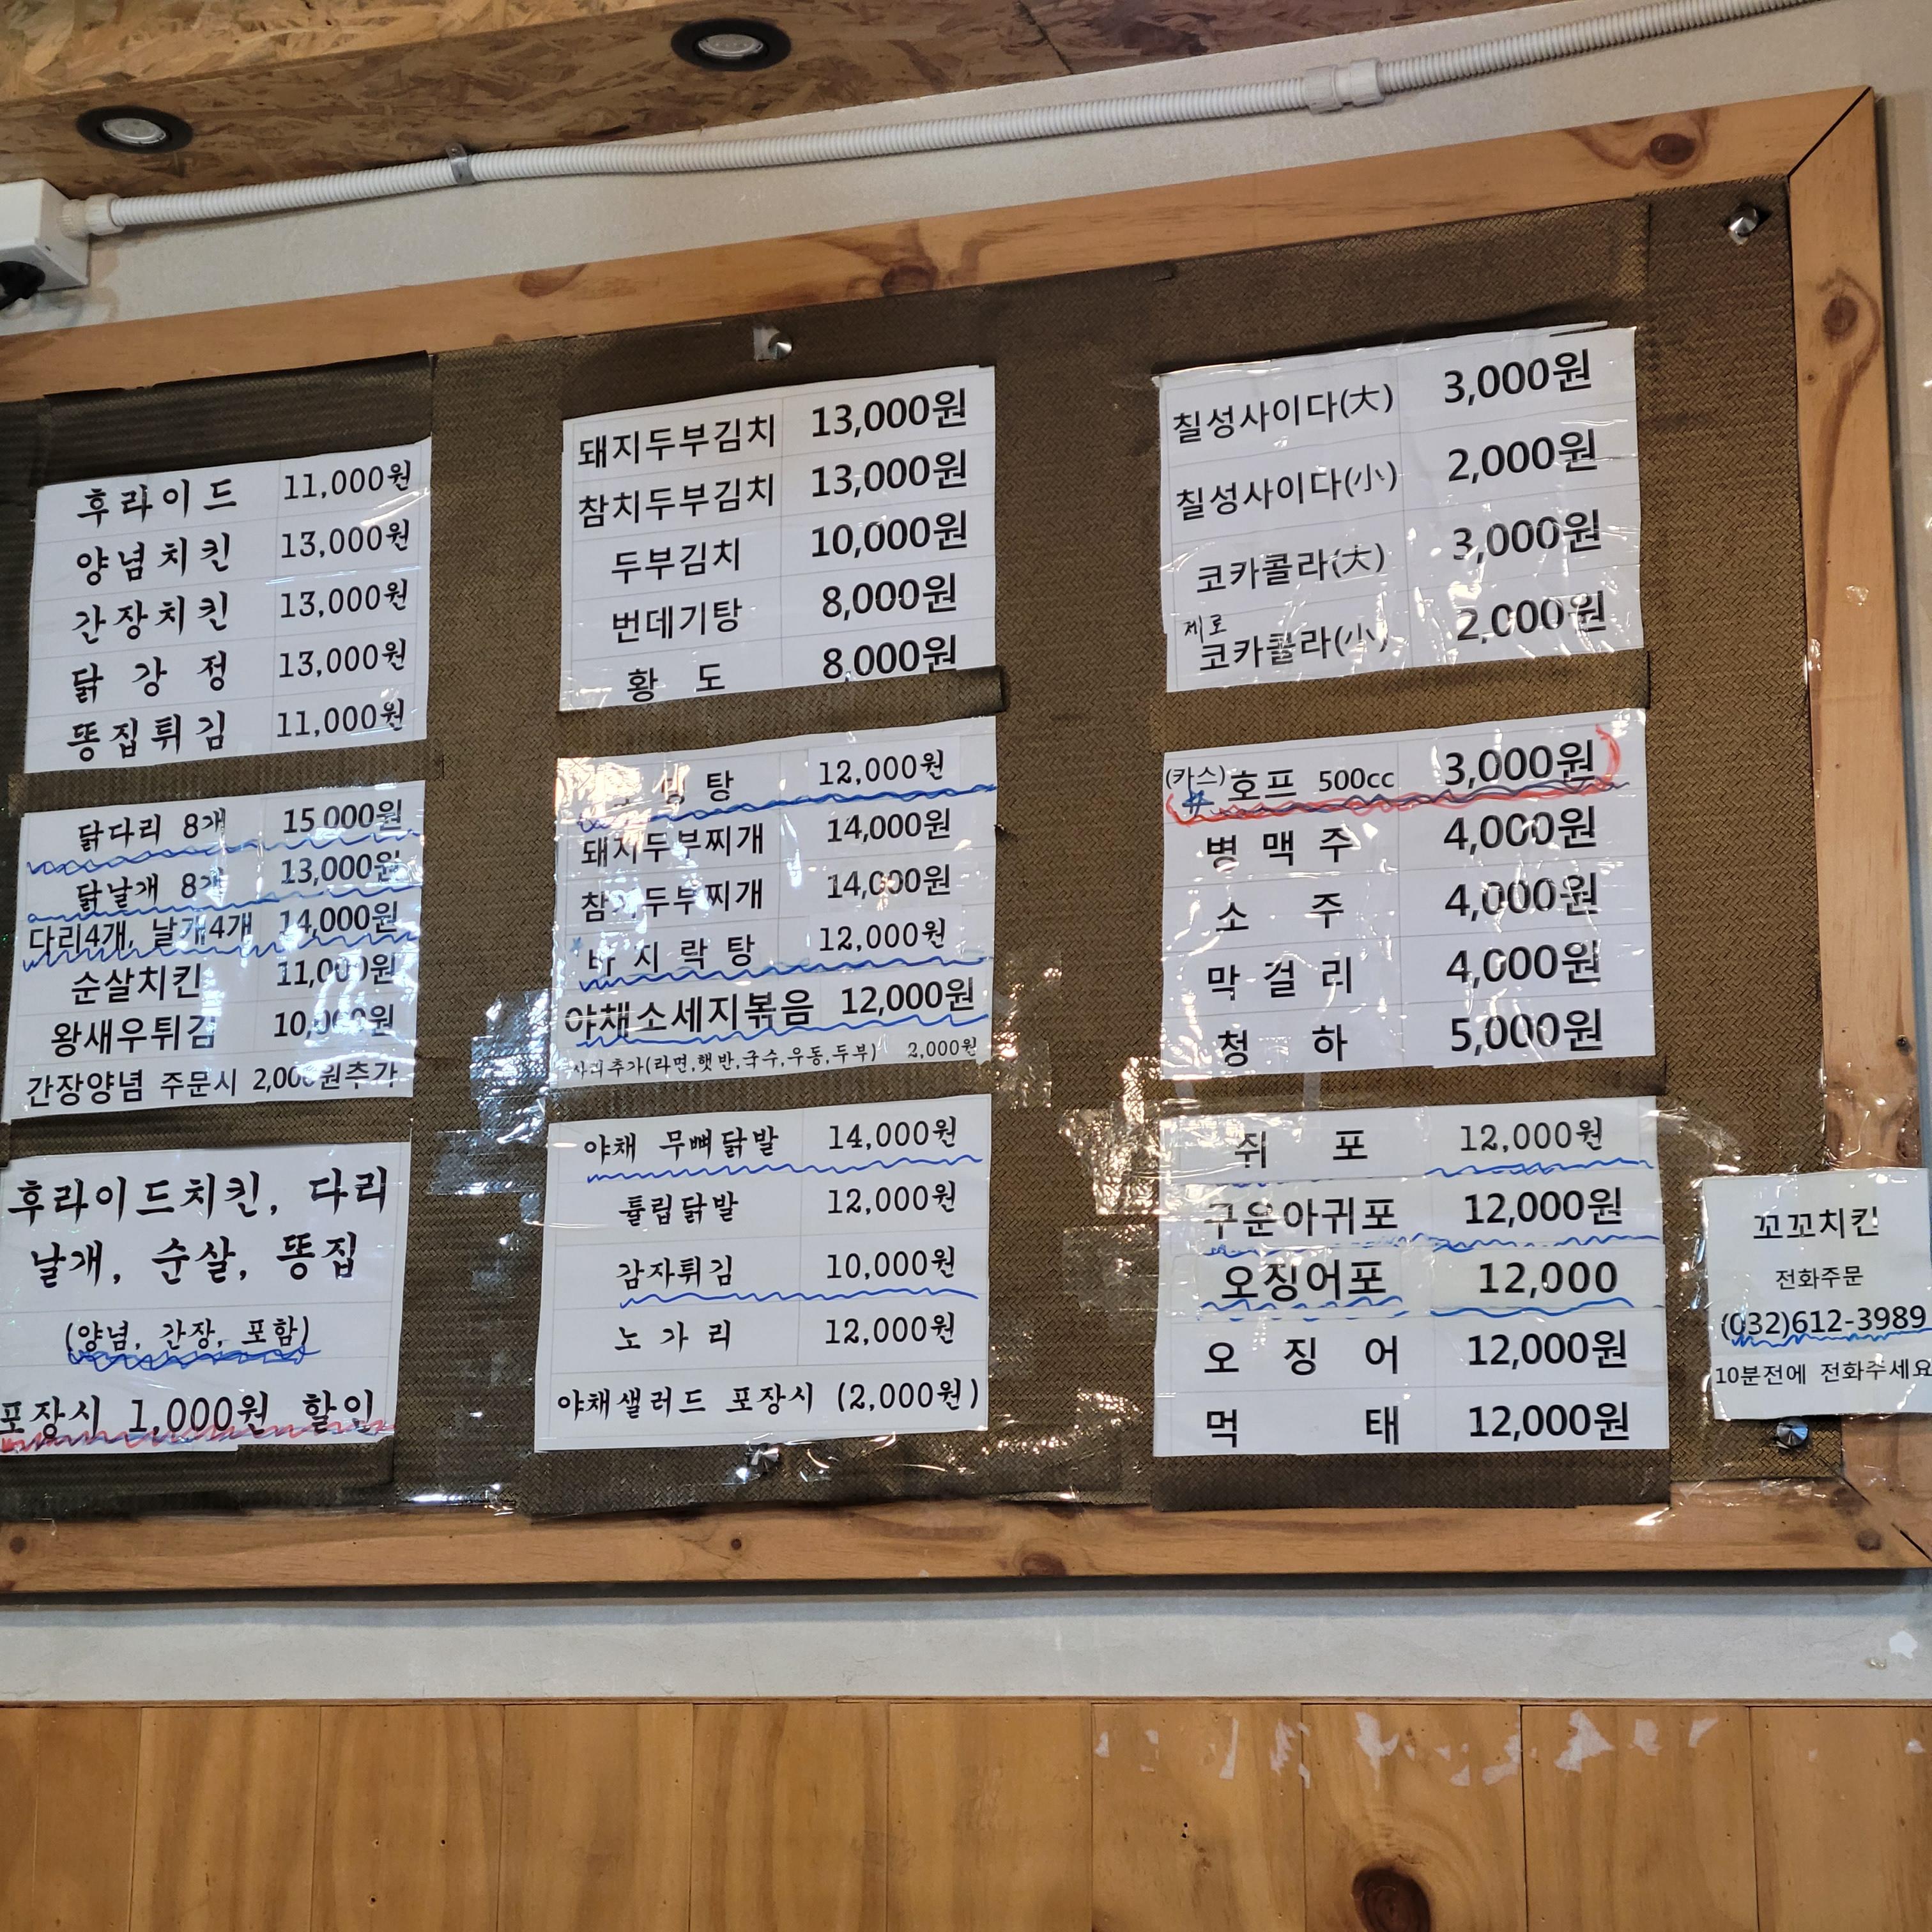 후라이드 11,000원
양념치킨 13,000원
간장치킨 13,000원
닭강정 13,000원
똥집튀김 11,000원
닭다리 8개 15,000원
닭날개 8개 13,000원
다리4개, 날개4개 14,000원
순살치킨 11,000원
왕새우튀김 10,000원
간장양념 주문시 2,000원추가
후라이드치킨, 다리
날개, 순살, 똥집
(양념, 간장, 포함)
포장시 1,000원 할인
돼지두부김치 13,000원
참치두부김치 13,000원
두부김치 10,000원
번데기탕 8,000원
황도 8,000원
탕 12,000원
돼지두부찌개 14,000원
참치두부찌개 14,000원
바지락탕 12,000원
야채소세지볶음 12,000원
사리추가(라면,햇반,국수,우동,두부) 2,000원
야채 무뼈닭발 14,000원
튤립닭발 12,000원
감자튀김 10,000원
노가리 12,000원
야채샐러드 포장시 (2,000원)
칠성사이다(大) 3,000원
칠성사이다(小) 2,000원
코카콜라(大) 3,000원
제로
코카콜라(小) 2,000원
(카스) 호프 500cc 3,000원
병맥주 4,000원
소주 4,000원
막걸리 4,000원
청하 5,000원
쥐포 12,000원
구운아귀포 12,000원
오징어포 12,000
오징어 12,000원
먹태 12,000원
꼬꼬치킨
전화주문
(032)612-3989
10분전에 전화주세요